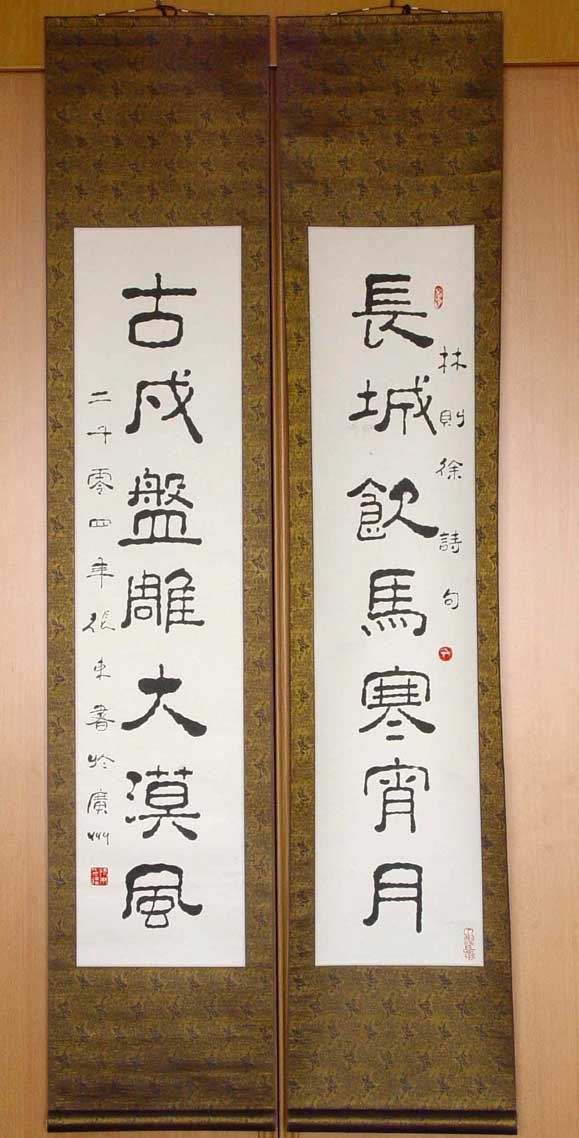 長城飲馬寒宵月
林則徐詩句
古戍盤雕大漠風
二千零四年張東書於廣州